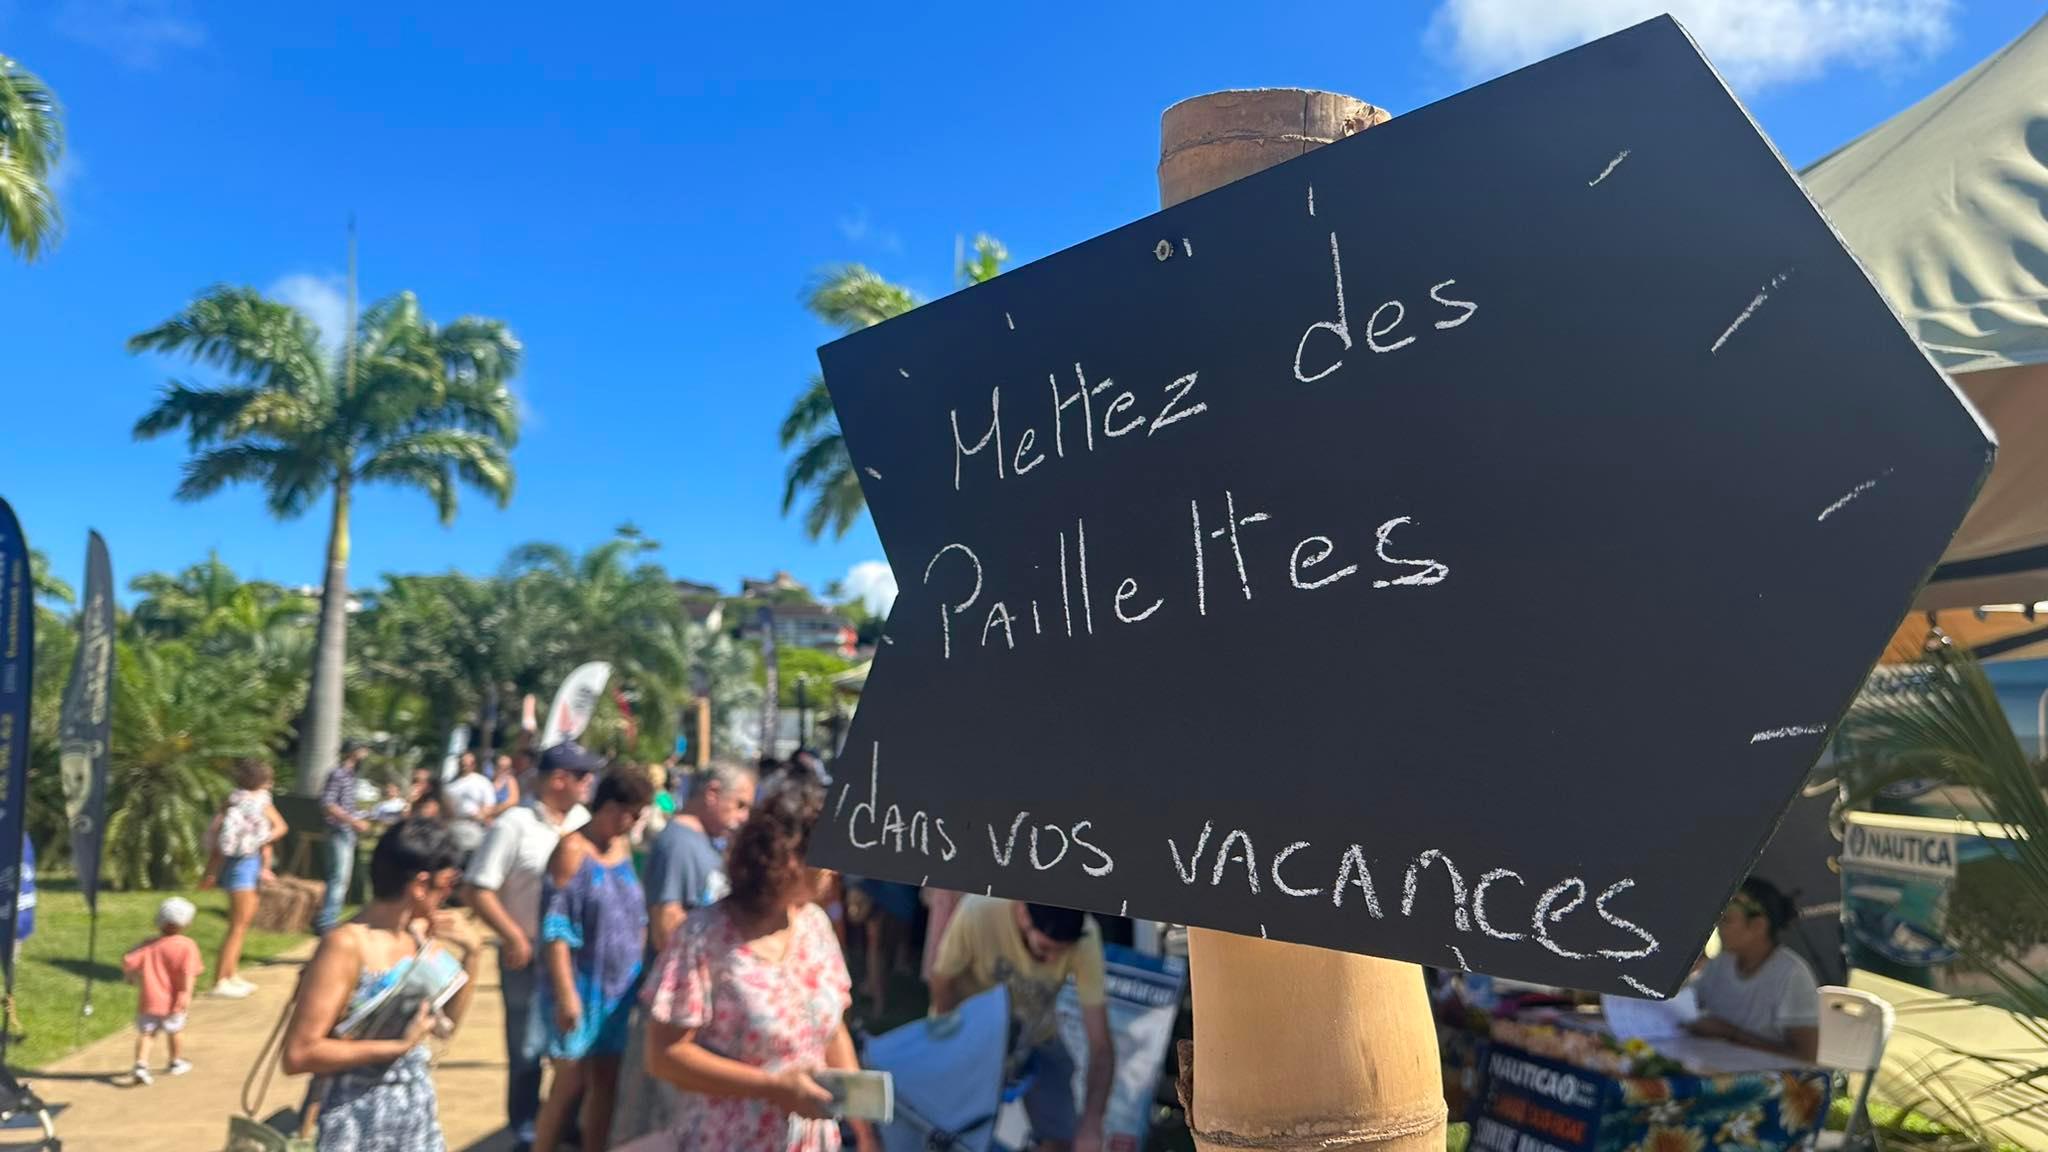 Mettez des
Paillettes
dans vos vacances
NAUTICA
NAUTICA